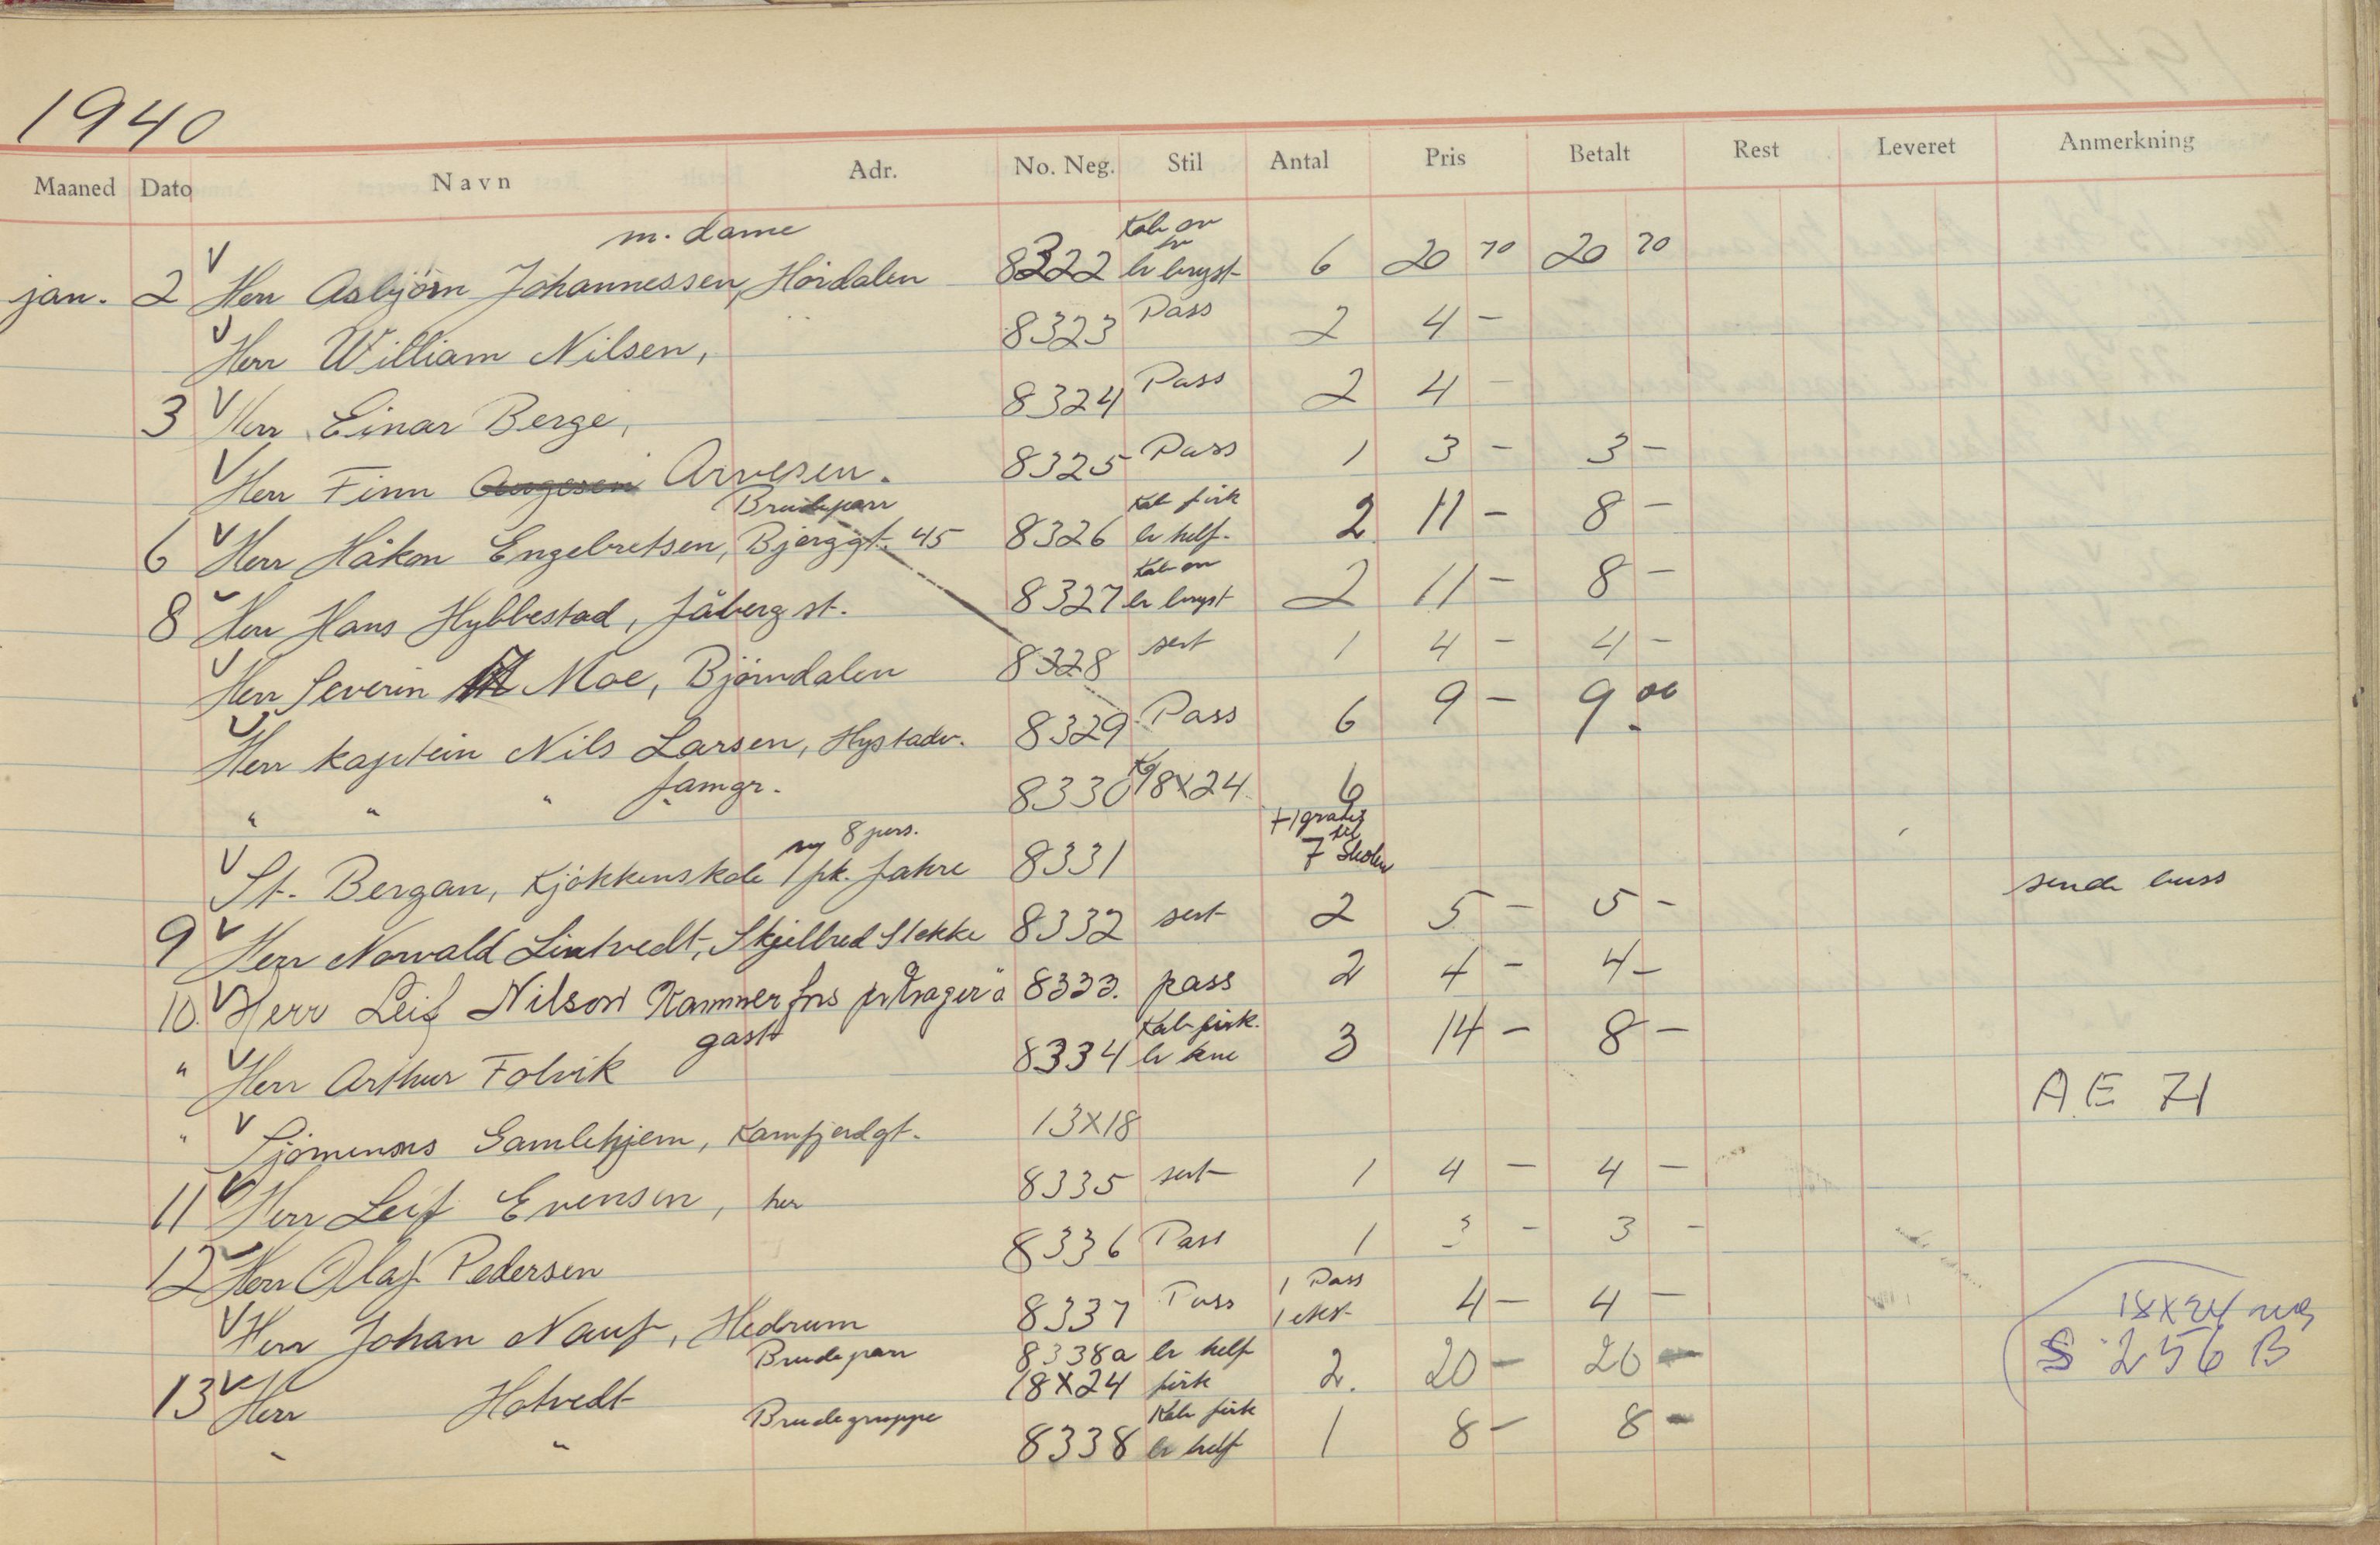 1940
Maaned Dato Navn Adr. No. Neg. Stil Antal Pris Betalt Rest Leveret Anmerkning
m. dame Kab
jan. 2 V Herr Asbjörn Johannessen, Hördalen 8322 br bryst 6 20 70 20 70
V Herr William Nilsen, 8323 Pass 2 4 -
3 V Herr Einar Berge, 8324 Pass 2 4 -
V Herr Finn Arvesen. 8325 Pass 1 3 - 3 -
Brudepar Kab firk
6 V Herr Håkon Engebretsen, Bjerggt. 45 8326 br helf. 2 11 - 8 -
Kab
8 V Herr Hans Hybbestad, Jåberg st. 8327 br bryst 2 11 - 8 -
V Herr Severin Moe, Björndalen 8328 sert 1 4 - 4 -
V Herr kaptein Nils Larsen, Hystadv. 8329 Pass 6 9 - 9 00
" " " famgr. 8330 18X24 6
8 pers. +1 gratis til
V St. Bergan, Kjökkenskole pk. Jahre 8331 7 Skolen
sende buss
9 V Herr Norvald Lintvedt, Skjellbred Stokke 8332 sert 2 5 - 5 -
10. V Herr Leif Nilson Kammerfos pr Kragerö 8333. pass 2 4 - 4 -
gast Kab firk.
" V Herr Arthur Folvik 8334 br kne 3 14 - 8 -
" V Sjömennns Gamlehjem, Kamfjordgt. 13X18 AE 71
11 V Herr Leif Evensen, her 8335 sert 1 4 - 4 -
12 V Herr Olaf Pedersen 8336 Pass 1 3 - 3 -
1 Pass
V Herr Johan Nauf, Hedrum 8337 Pass 1 ekst. 4 - 4 -
18X24 neg
Brudepar 8338a br helf S 256 B
13 V Herr Hotvedt 18X24 firk 2. 20 - 20 -
Brudegruppe Kab firk
" " 8338 br helf 1 8 - 8 -